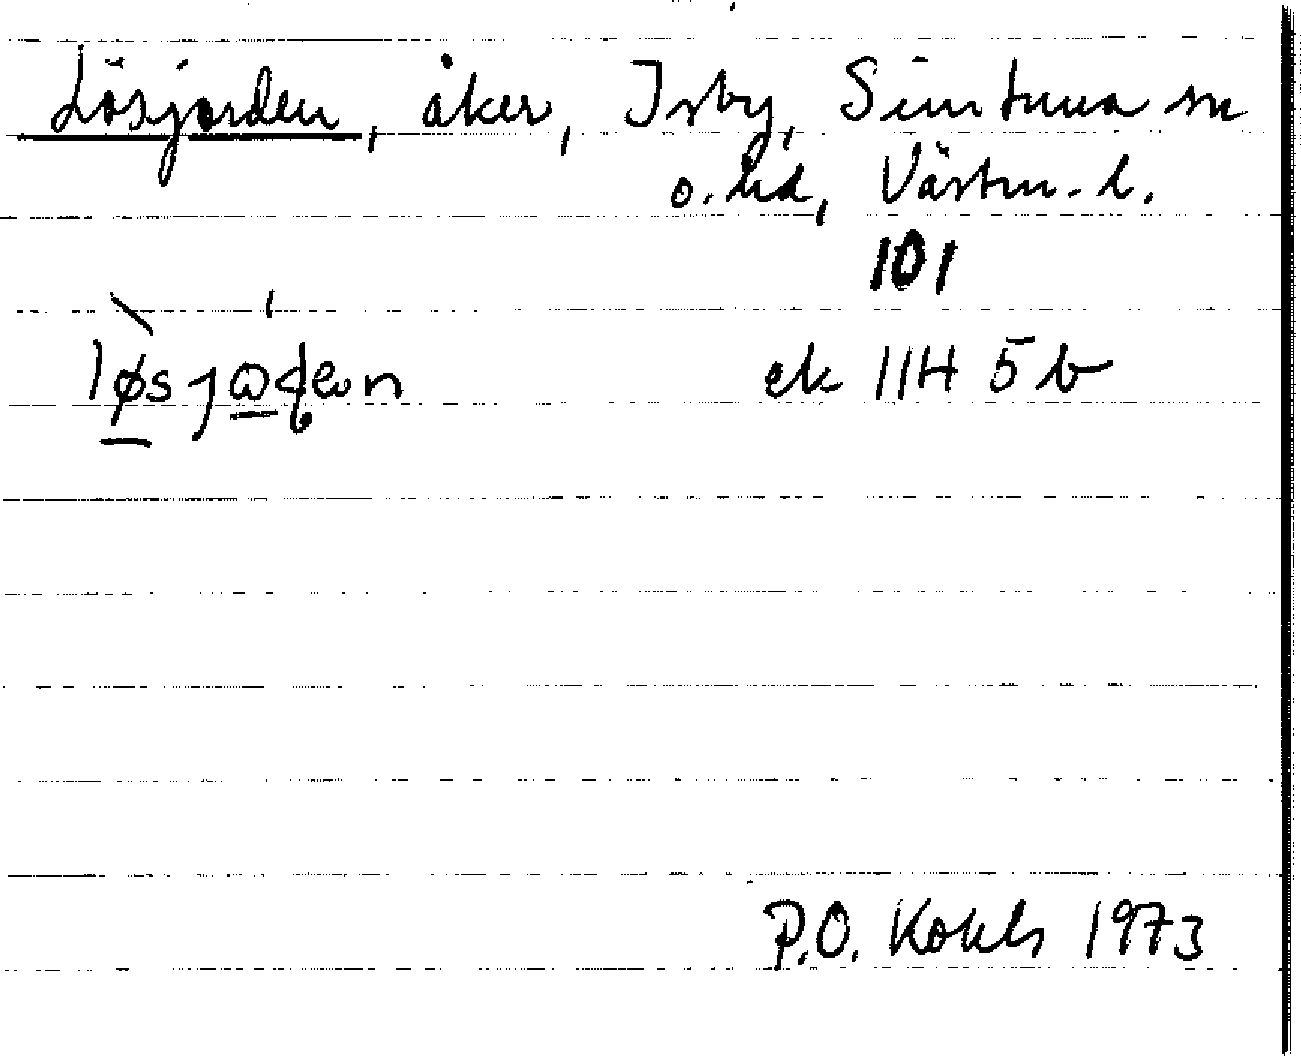 Lösjorden, åker, Isby, Simtuna sn
o. hd, Västm. l.
101
ek 11H 5b
P.O. Kohls 1973